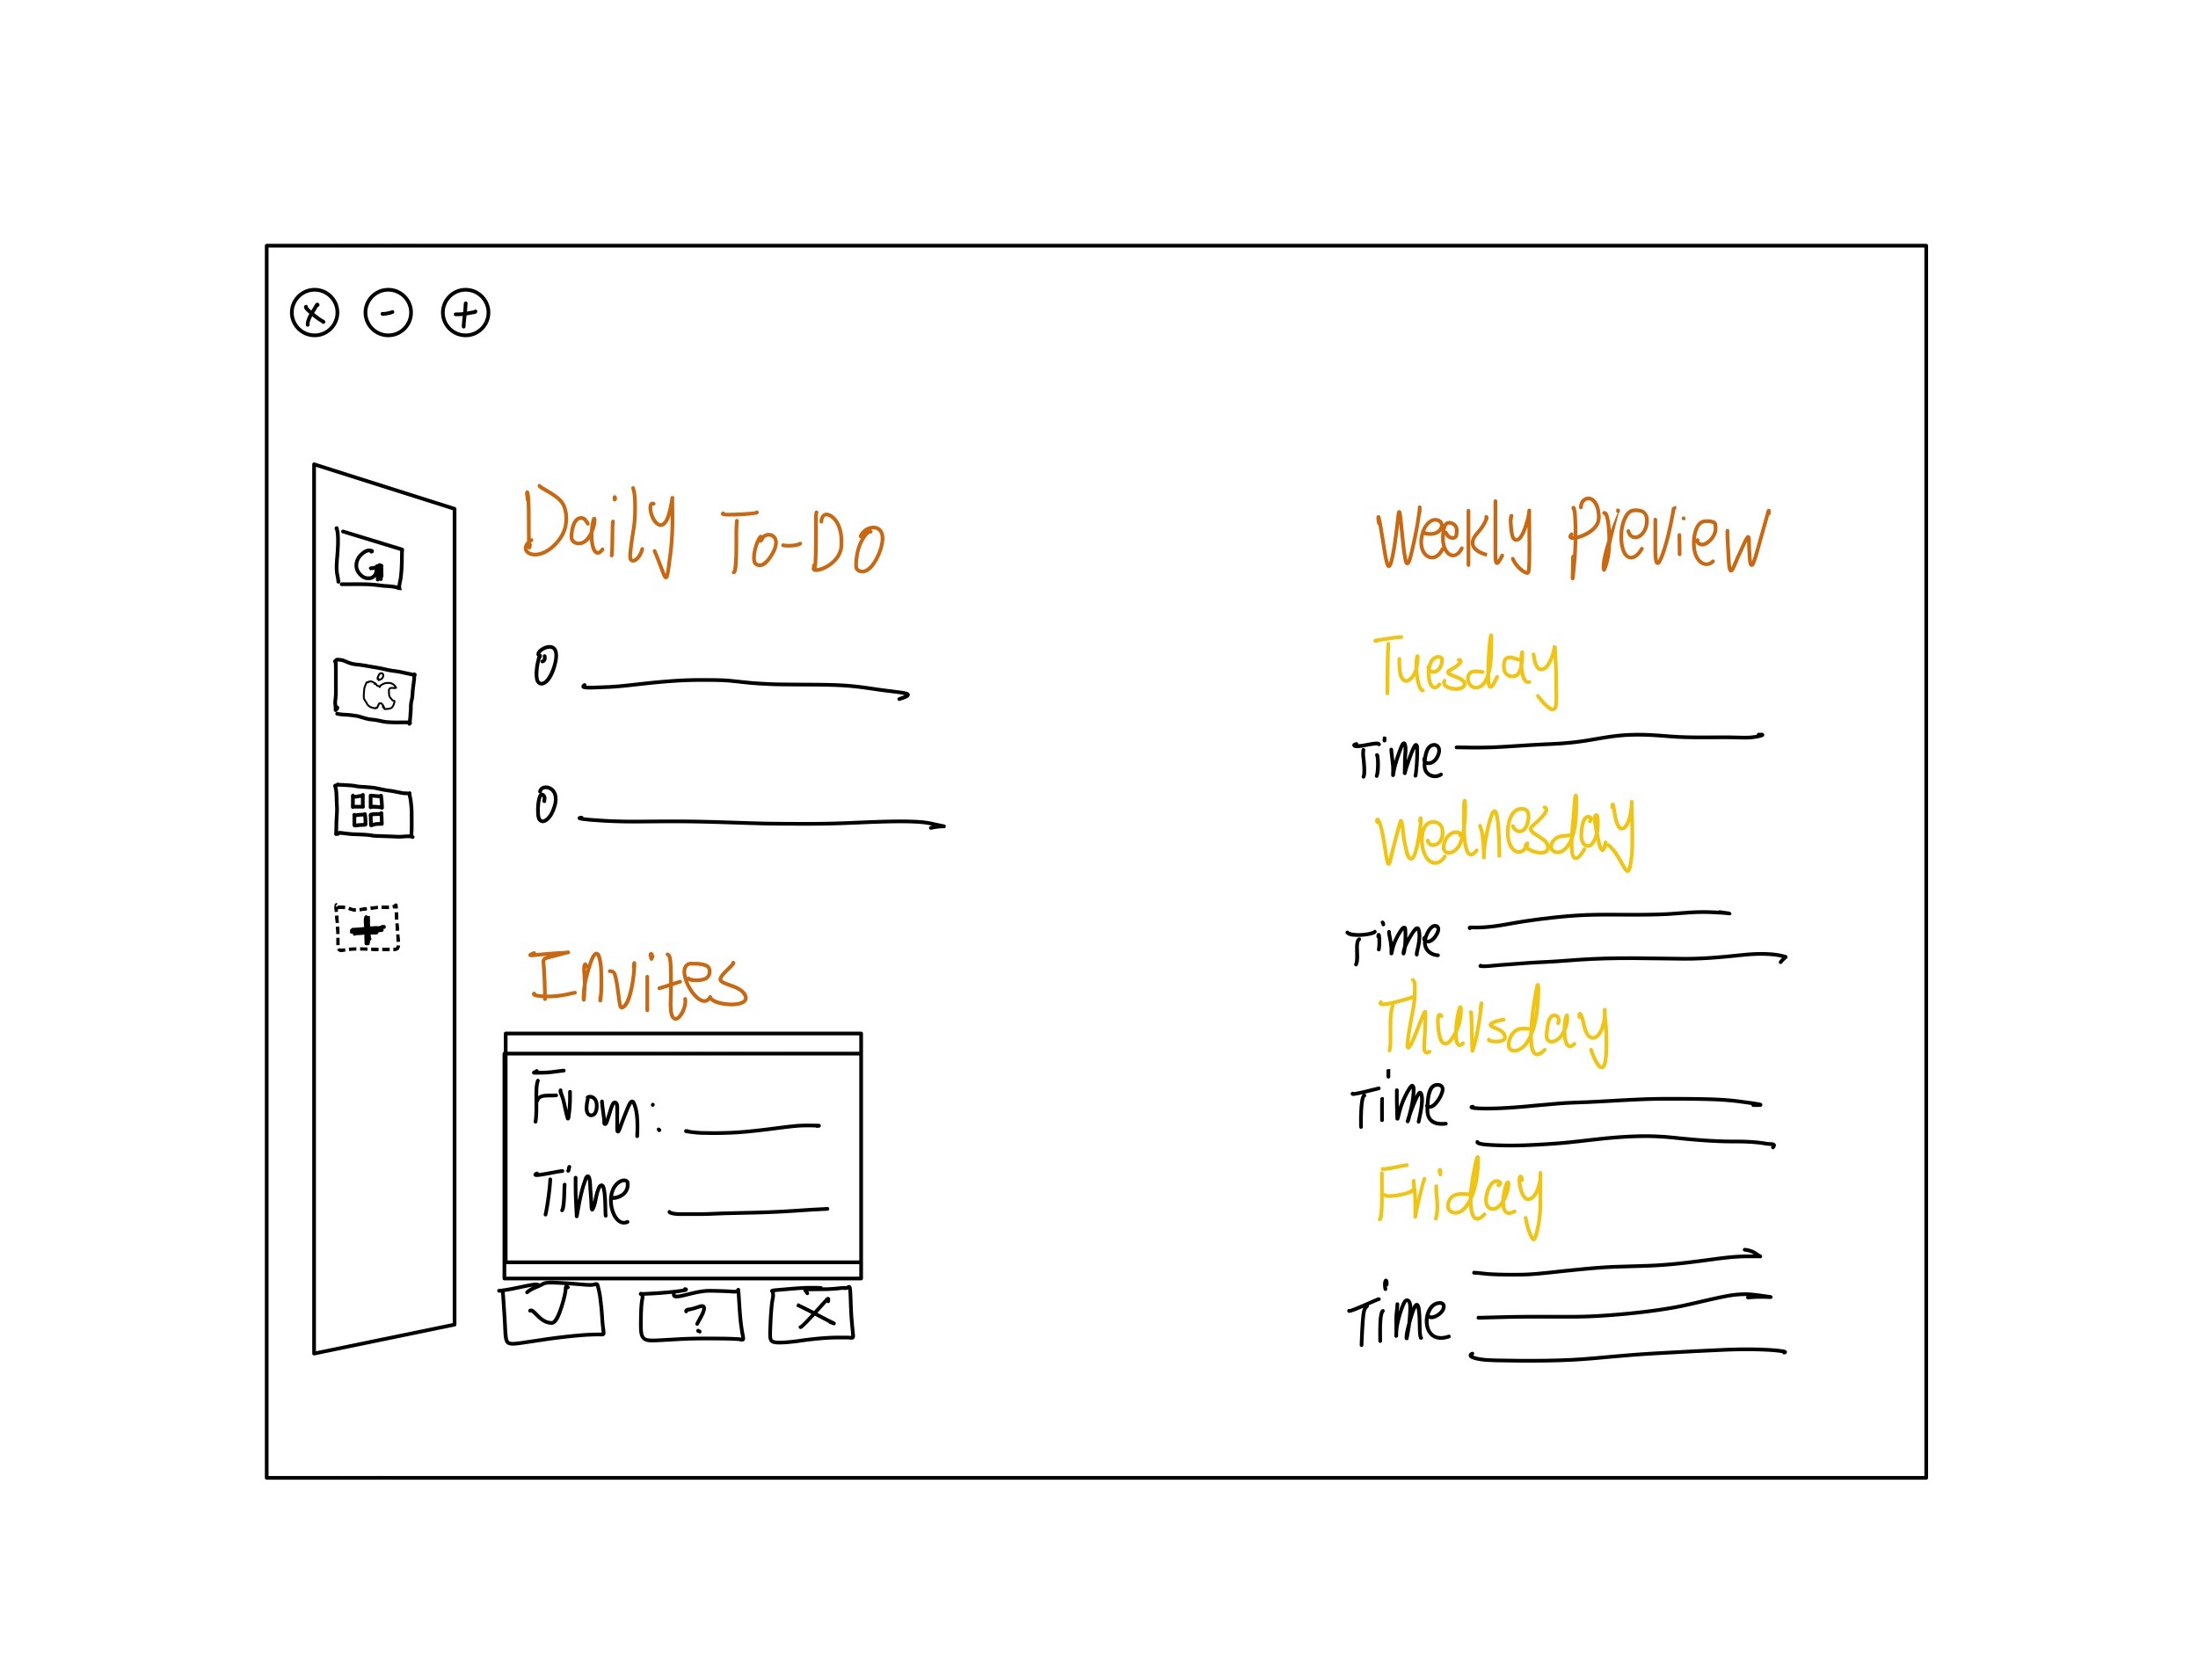 × - +
G
+
Daily To-Do
Invites
From:
Time
✓ ? ×
Weekly Preview
Tuesday
Time
Wednesday
Time
Thursday
Time
Friday
Time